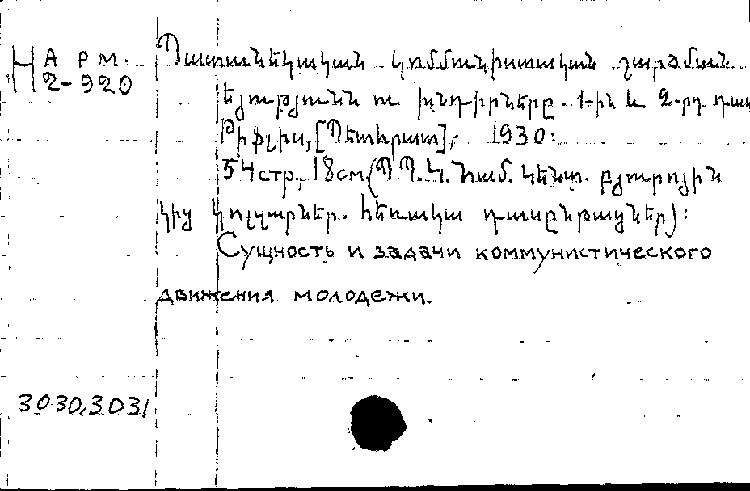 Н А Р М.
2-920
Պատանեկական կոմմունիստական շարժման
եյությունն ու խնդիրները. 1-ին և 2-րդ դաս
Թիֆլիս, [Պետհրատ], 1930:
54стр., 18см
կից կուլպարներ. հեռակա դասընթացներ):
Сущность и задачи коммунистического
движения молодежи.
3030,3031